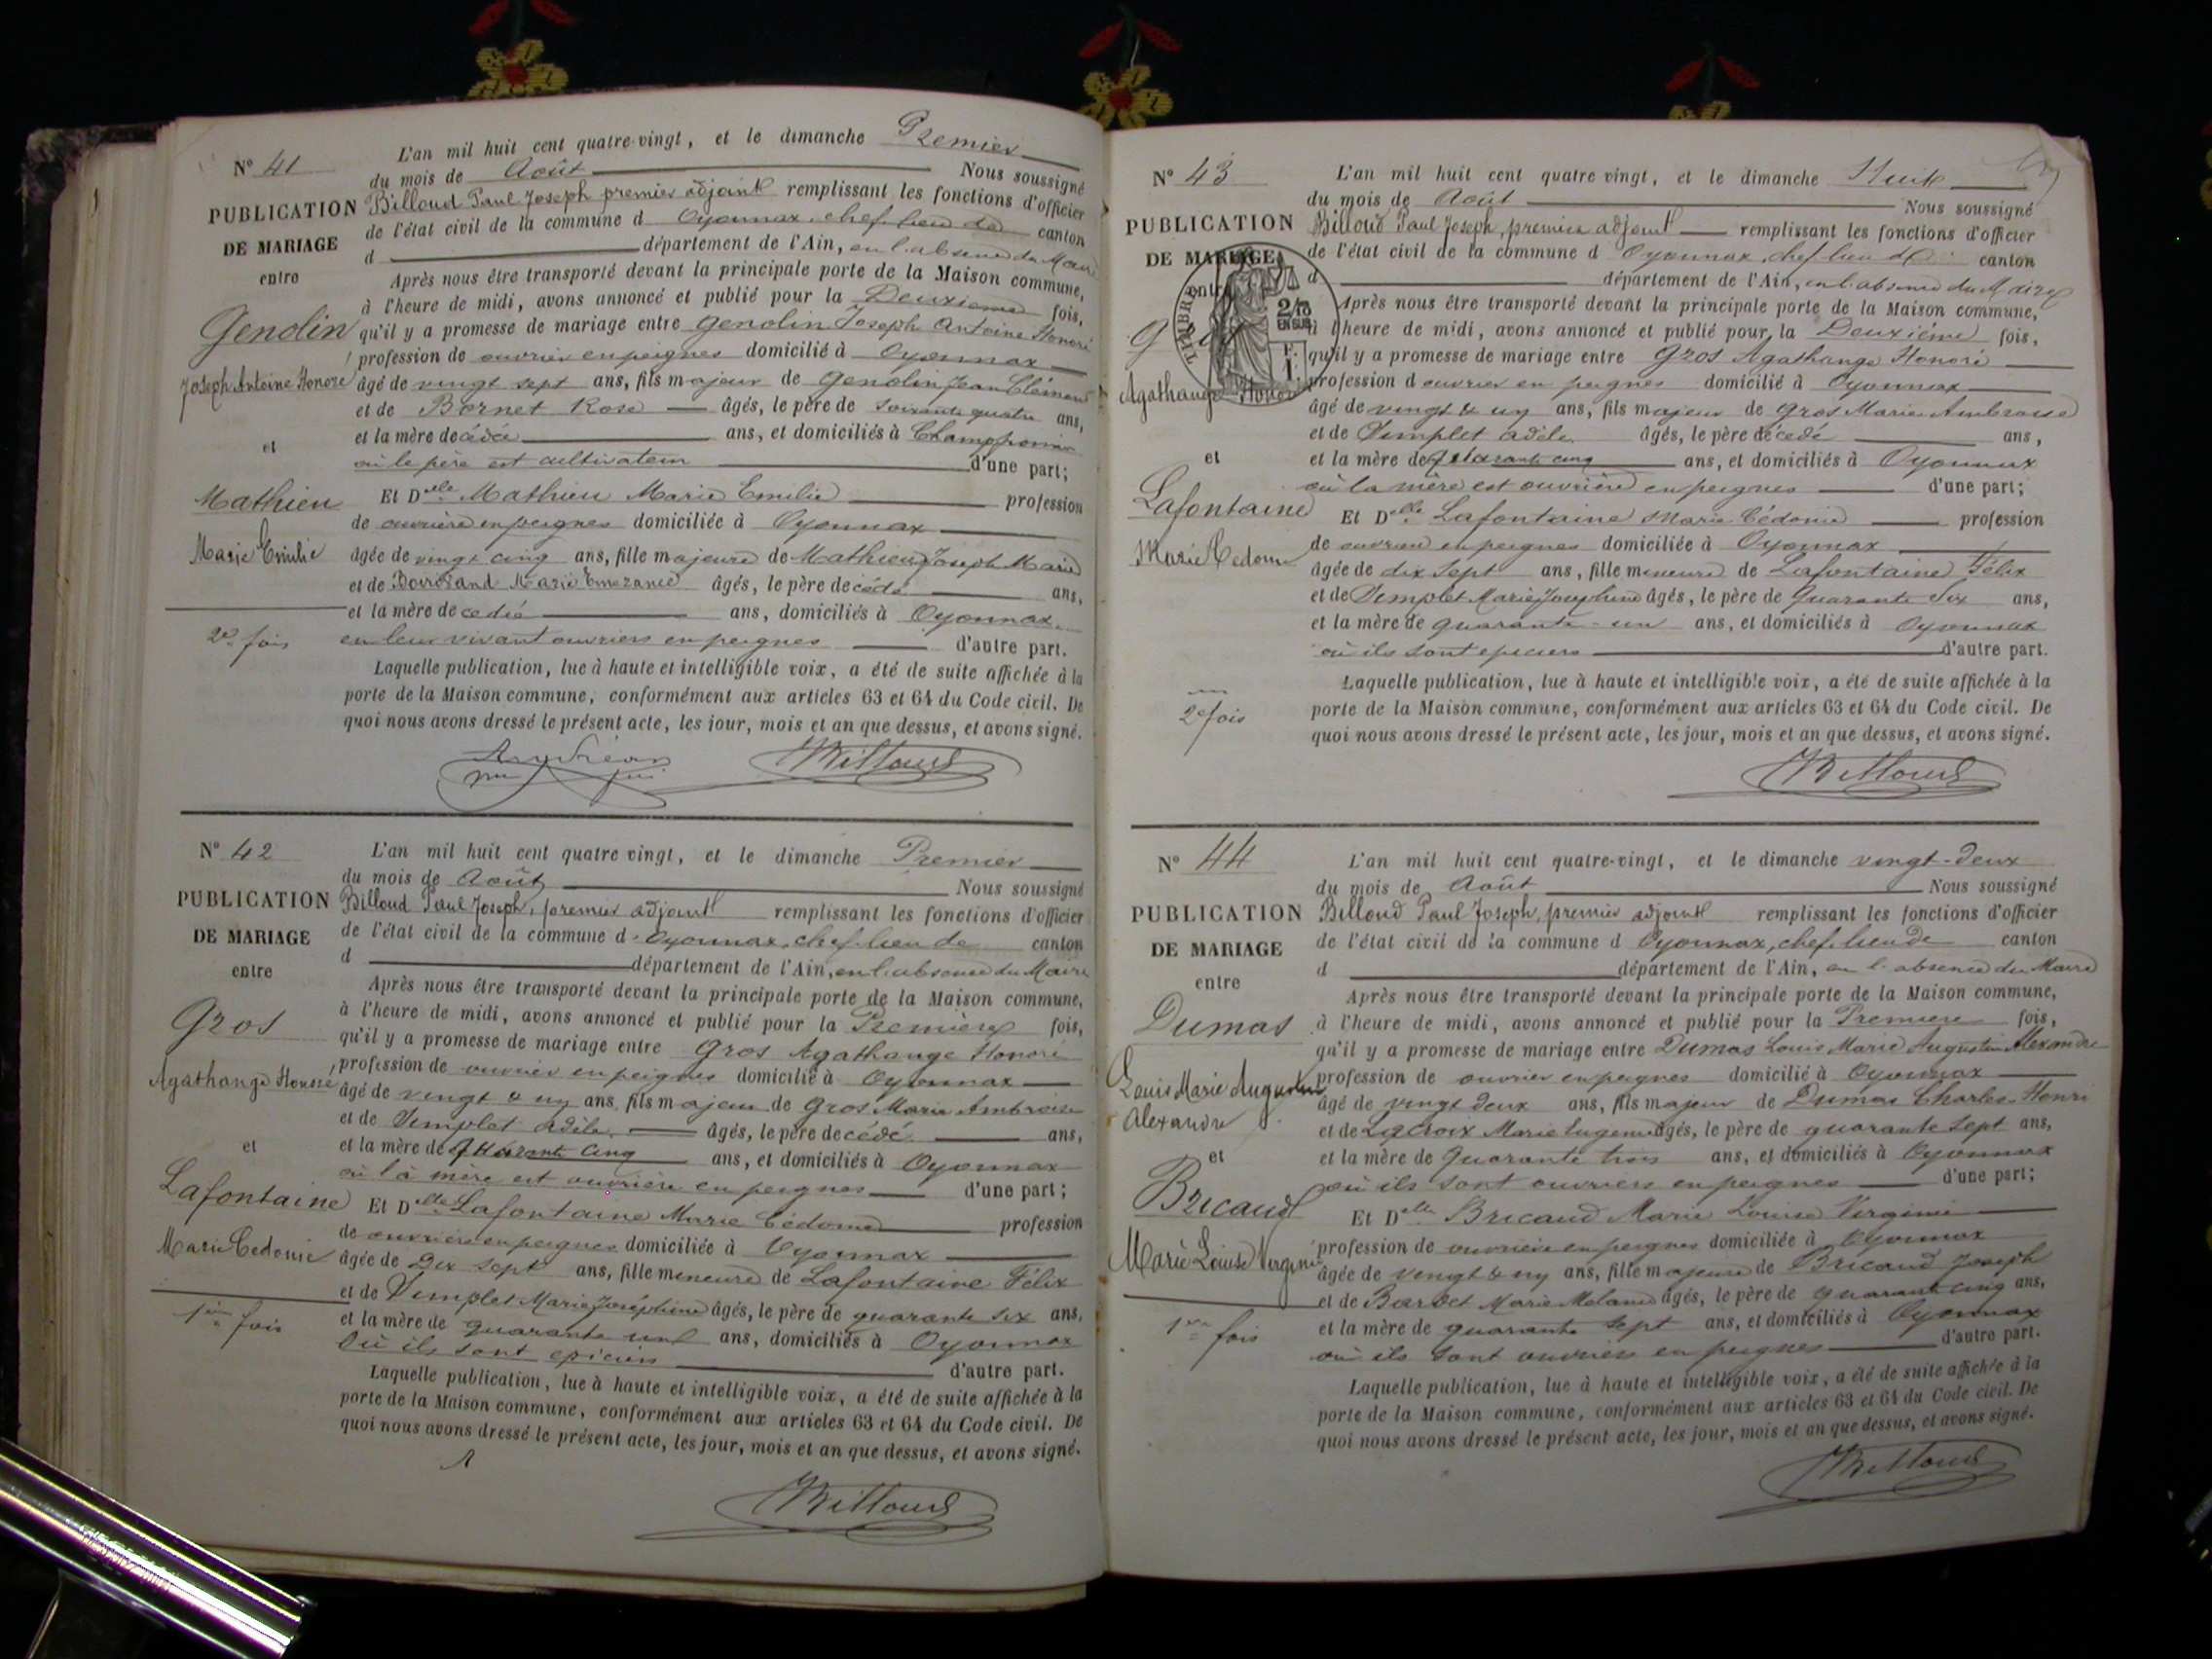 N° 41
PUBLICATION
DE MARIAGE
entre
Genolin
Joseph Antoine Honoré
et
Mathieu
Marie Emilie
2e fois
L'an mil huit cent quatre-vingt, et le dimanche Premier
du mois de Août Nous soussigné
Billoud Paul Joseph premier adjoint remplissant les fonctions d'officier
de l'état civil de la commune d Oyonnax, chef-lieu de canton
d département de l'Ain, en l'absence du Maire
Après nous être transporté devant la principale porte de la Maison commune,
à l'heure de midi, avons annoncé et publié pour la Deuxième fois,
qu'il y a promesse de mariage entre Genolin Joseph Antoine Honoré
profession de ouvrier en peignes domicilié à Oyonnax
âgé de vingt sept ans, fils majeur de Genolin Jean Clément
et de Bornet Rose âgés, le père de soixante quatre ans,
et la mère décédée ans, et domiciliés à
où le père est cultivateur d'une part;
Et Delle Mathieu Marie Emilie profession
de ouvrière en peignes domiciliée à Oyonnax
âgée de vingt cinq ans, fille majeure de Mathieu Joseph Marie
et de Marie Emerance âgés, le père décédé ans,
et la mère décédée ans, domiciliés à Oyonnax
en leur vivant ouvriers en peignes d'autre part.
Laquelle publication, lue à haute et intelligible voix, a été de suite affichée à la
porte de la Maison commune, conformément aux articles 63 et 64 du Code civil. De
quoi nous avons dressé le présent acte, les jour, mois et an que dessus, et avons signé.
Billoud
N° 42
PUBLICATION
DE MARIAGE
entre
Gros
Agathange Honoré
et
Lafontaine
Marie Cedonie
1ère fois
L'an mil huit cent quatre vingt, et le dimanche Premier
du mois de Août Nous soussigné
Billoud Paul Joseph, premier adjoint remplissant les fonctions d'officier
de l'état civil de la commune d Oyonnax, chef-lieu de canton
d département de l'Ain, en l'absence du Maire
Après nous être transporté devant la principale porte de la Maison commune,
à l'heure de midi, avons annoncé et publié pour la Première fois,
qu'il y a promesse de mariage entre Gros Agathange Honoré
profession de ouvrier en peignes domicilié à Oyonnax
âgé de vingt & un ans, fils majeur de Gros Marie Ambroise
et de Templet Adèle âgés, le père décédé ans,
et la mère de quarante cinq ans, et domiciliés à Oyonnax
où la mère est ouvrière en peignes d'une part;
Et Delle Lafontaine Marie Cédonie profession
de ouvrière en peignes domiciliée à Oyonnax
âgée de Dix sept ans, fille mineure de Lafontaine Félix
et de Templet Marie Joséphine âgés, le père de quarante six ans,
et la mère de quarante une ans, domiciliés à Oyonnax
Où ils sont épiciers d'autre part.
Laquelle publication, lue à haute et intelligible voix, a été de suite affichée à la
porte de la Maison commune, conformément aux articles 63 et 64 du Code civil. De
quoi nous avons dressé le présent acte, les jour, mois et an que dessus, et avons signé.
Billoud
N° 43
PUBLICATION
DE MARIAGE
entre
TIMBRE
2/10
EN SUS
F.
1.
Agathange Honoré
et
Lafontaine
Marie Cedonie
2e fois
L'an mil huit cent quatre vingt, et le dimanche Huit
du mois de Août Nous soussigné
Billoud Paul Joseph, premier adjoint remplissant les fonctions d'officier
de l'état civil de la commune d Oyonnax, chef lieu de canton
d département de l'Ain, en l'absence du Maire
Après nous être transporté devant la principale porte de la Maison commune,
à l'heure de midi, avons annoncé et publié pour la Deuxième fois,
qu'il y a promesse de mariage entre Gros Agathange Honoré
profession d ouvrier en peignes domicilié à Oyonnax
âgé de vingt & un ans, fils majeur de Gros Marie Ambroise
et de Templet Adèle âgés, le père décédé ans,
et la mère de quarante cinq ans, et domiciliés à Oyonnax
où la mère est ouvrière en peignes d'une part;
Et Delle Lafontaine Marie Cédonie profession
de ouvrière en peignes domiciliée à Oyonnax
âgée de dix sept ans, fille mineure de Lafontaine Félix
et de Templet Marie Joséphine âgés, le père de Quarante six ans,
et la mère de quarante-un ans, et domiciliés à Oyonnax
où ils sont épiciers d'autre part.
Laquelle publication, lue à haute et intelligible voix, a été de suite affichée à la
porte de la Maison commune, conformément aux articles 63 et 64 du Code civil. De
quoi nous avons dressé le présent acte, les jour, mois et an que dessus, et avons signé.
Billoud
N° 44
PUBLICATION
DE MARIAGE
entre
Dumas
Louis Marie Augustin
Alexandre
et
Bricaud
Marie Louise Virginie
1ère fois
L'an mil huit cent quatre-vingt, et le dimanche vingt-deux
du mois de Août Nous soussigné
Billoud Paul Joseph, premier adjoint remplissant les fonctions d'officier
de l'état civil de la commune d Oyonnax, chef-lieu de canton
d département de l'Ain, en l'absence du Maire
Après nous être transporté devant la principale porte de la Maison commune,
à l'heure de midi, avons annoncé et publié pour la Première fois,
qu'il y a promesse de mariage entre Dumas Louis Marie Augustin Alexandre
profession de ouvrier en peignes domicilié à Oyonnax
âgé de vingt deux ans, fils majeur de Dumas Charles Henri
et de Lacroix Marie Eugenie âgés, le père de quarante sept ans,
et la mère de Quarante trois ans, et domiciliés à Oyonnax
où ils sont ouvriers en peignes d'une part;
Et Delle Bricaud Marie Louise Virginie
profession de ouvrière en peignes domiciliée à Oyonnax
âgée de vingt & un ans, fille majeure de Bricaud Joseph
et de Barbet Marie Melanie âgés, le père de quarante cinq ans,
et la mère de quarante sept ans, et domiciliés à Oyonnax
où ils sont ouvriers en peignes d'autre part.
Laquelle publication, lue à haute et intelligible voix, a été de suite affichée à la
porte de la Maison commune, conformément aux articles 63 et 64 du Code civil. De
quoi nous avons dressé le présent acte, les jour, mois et an que dessus, et avons signé.
Billoud